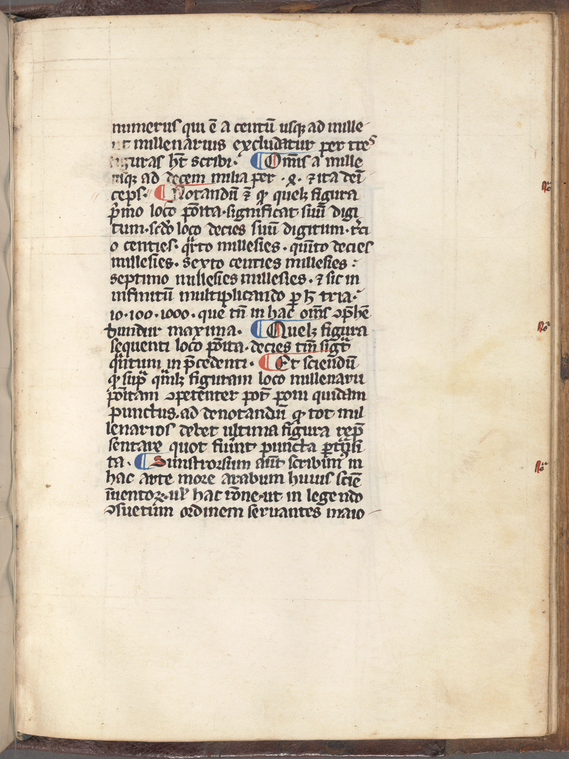 numerus qui ē a centū usq; ad mille
ut millenarius excludatur per tres
figuras ht scribi. Omīs a mille
usq; ad decem milia per .4. ⁊ ita dein
ceps. Notandū ⁊ ꝙ quel; figura
pͥmo loco posita significat suū digi
tum. sc̄do loco decies suū digitum. tͬci
o centies. qͣrto millesies. quīto decies
millesies. sexto centies millesies :
septimo millesies millesies. ⁊ sic in
infinitū multiplicando ꝑ h̄ tria.
10. 100. 1000. que tn̄ in hac om̄s ꝯp̄he
duntur maxima. Quel; figura
sequenti loco posita. decies tm̄ sigͭ
qͣntum in p̄cedenti. Et sciendū
ꝙ supͣ qͣml; figuram loco millenarii
positam ꝯpetenter pot̄ poni quidam
punctus. ad denotandū ꝙ tot mil
lenarios debet ultima figura rep̄
sentare quot fiunt puncta
ta. Sinistrorsum aut̄ scribim̄ in
hac arte more arabum huius sciē
īuentoꝝ. ul' hac rōne. ut in legendo
ꝯsuetum ordinem servantes maio